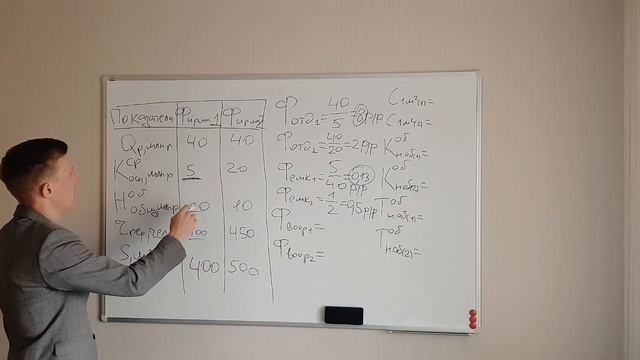 Показатели Фирма 1 Фирма 2
Qр, млн р 40 40
Kср осн, млн р 5 20
Hоб общ, млн р 20 10
Zпер, чел 100 450
S, м² 400 500
Фотд1 = 40/5 = 8 р/р
Фотд2 = 40/20 = 2 р/р
Фемк1 = 5/40 = 0,13 р/р
Фемк2 = 1/2 = 0,5 р/р
Фвоор1 =
Фвоор2 =
C1м²(1) =
C1м²(2) =
Kоб н.об(1) =
Kоб н.об(2) =
Tоб н.об(1) =
Tоб н.об(2) =